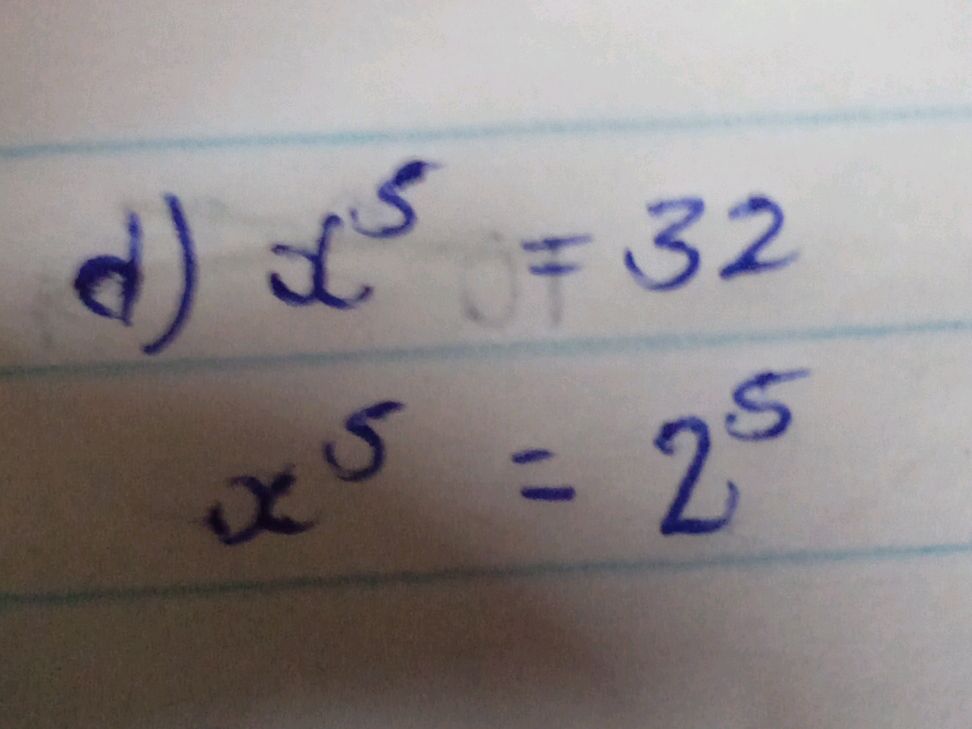 d) x⁵ = 32
x⁵ = 2⁵